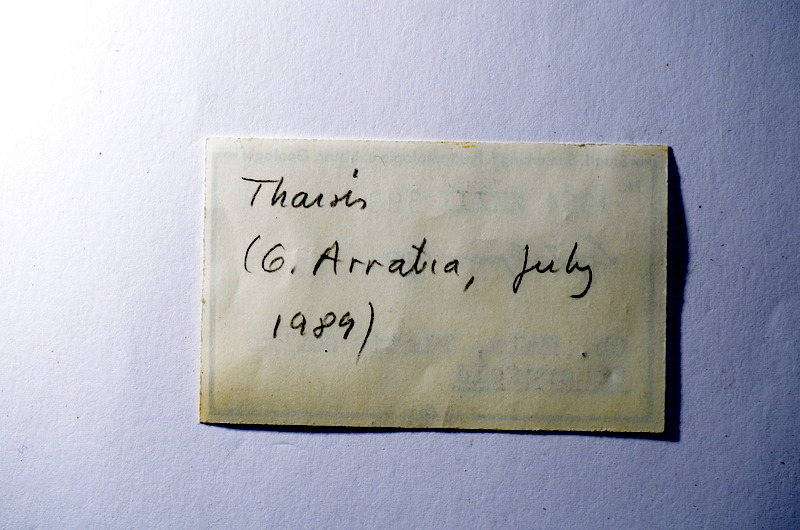 Tharsis
(G. Arratia, July
1989)